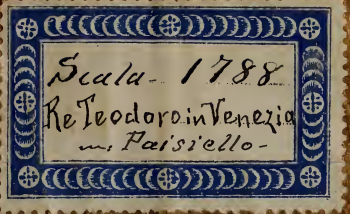 Scala - 1788
Re Teodoro in Venezia
m: Paisiello -